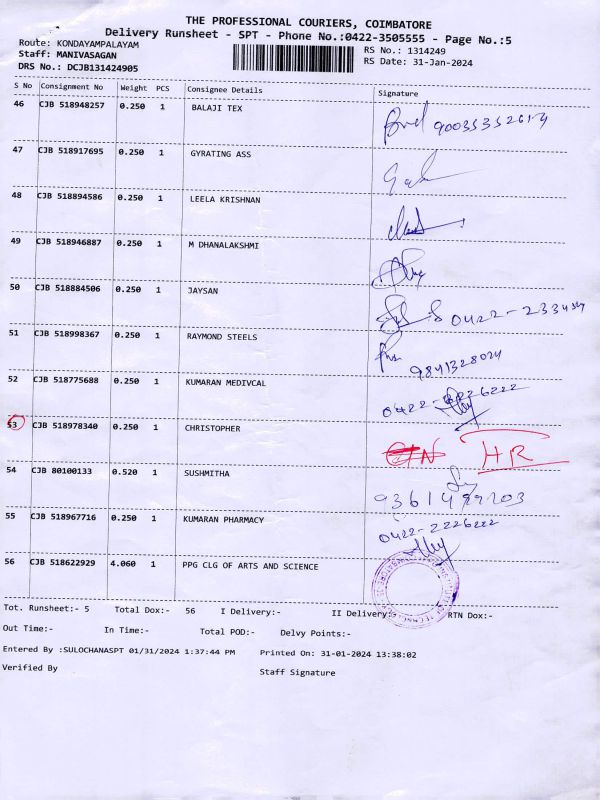 THE PROFESSIONAL COURIERS, COIMBATORE
Delivery Runsheet - SPT - Phone No.:0422-3505555 - Page No.:5
Route: KONDAYAMPALAYAM
Staff: MANIVASAGAN
DRS No.: DCJB131424905
RS No.: 1314249
RS Date: 31-Jan-2024
S No Consignment No Weight PCS Consignee Details Signature
46 CJB 518948257 0.250 1 BALAJI TEX
47 CJB 518917695 0.250 1 GYRATING ASS
48 CJB 518894586 0.250 1 LEELA KRISHNAN
49 CJB 518946887 0.250 1 M DHANALAKSHMI
50 CJB 518884506 0.250 1 JAYSAN
51 CJB 518998367 0.250 1 RAYMOND STEELS
9841328024
52 CJB 518775688 0.250 1 KUMARAN MEDIVCAL
53 CJB 518978340 0.250 1 CHRISTOPHER HR
54 CJB 80100133 0.520 1 SUSHMITHA
55 CJB 518967716 0.250 1 KUMARAN PHARMACY 0422-2226222
56 CJB 518622929 4.060 1 PPG CLG OF ARTS AND SCIENCE
Tot. Runsheet:- 5 Total Dox:- 56 I Delivery:- II Delivery:- RTN Dox:-
Out Time:- In Time:- Total POD:- Delvy Points:-
Entered By :SULOCHANASPT 01/31/2024 1:37:44 PM Printed On: 31-01-2024 13:38:02
Verified By Staff Signature